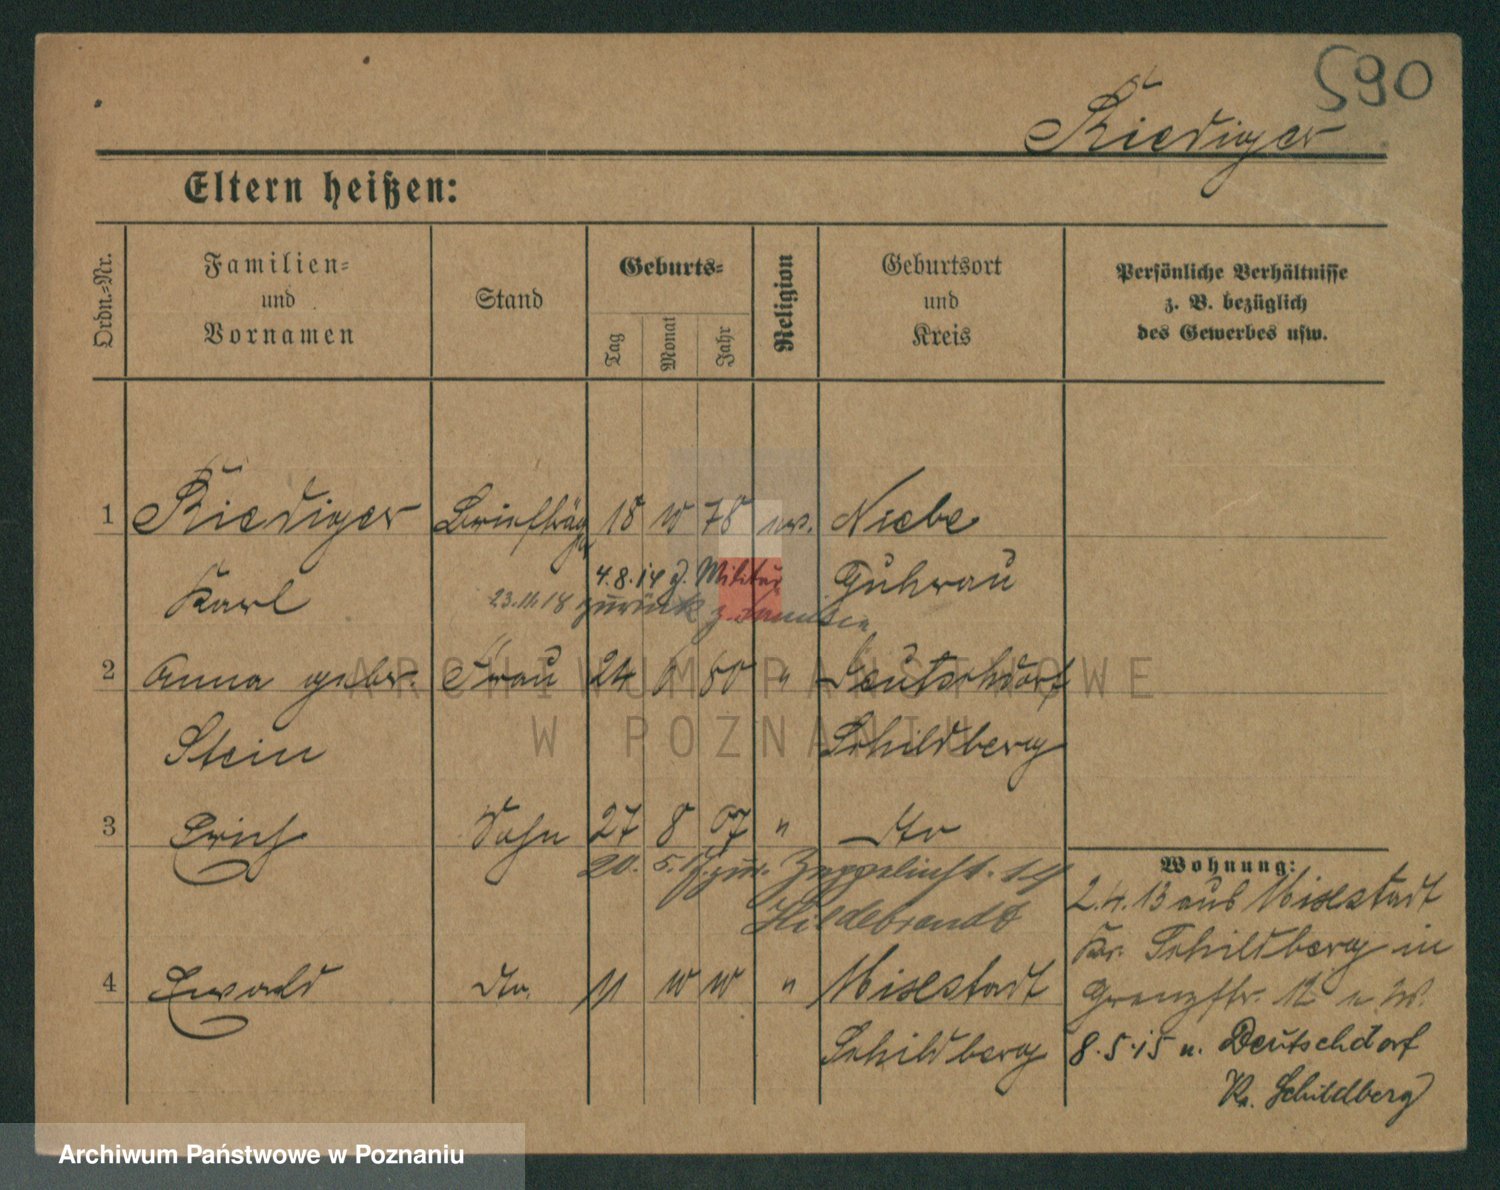 590
Riediger
Eltern heißen:
Ordn.-Nr.
Familien-
und
Vornamen
Stand
Geburts-
Tag
Monat
Jahr
Religion
Geburtsort
und
Kreis
Persönliche Verhältnisse
z. B. bezüglich
des Gewerbes usw.
1 Riediger Briefträger 18 10 78 ev. Niebe
Karl 4.8.14 z. Militär Guhrau
23.11.18 zurück z. Familie
2 Anna geb. Frau 24 6 80 " Deutschdorf
Stein Schildberg
3 Erich Sohn 27 8 07 " dto
20. 5. 17 zur. Zeppelinst. 14
Hildebrandt
4 Ewald dto. 11 10 10 " Mixstadt
Schildberg
Wohnung:
2.4.13 aus Mixstadt
Kr. Schildberg in
Grenzstr. 12
8.5.15 n. Deutschdorf
Kr. Schildberg
ARCHIWUM PAŃSTWOWE
W POZNANIU
Archiwum Państwowe w Poznaniu